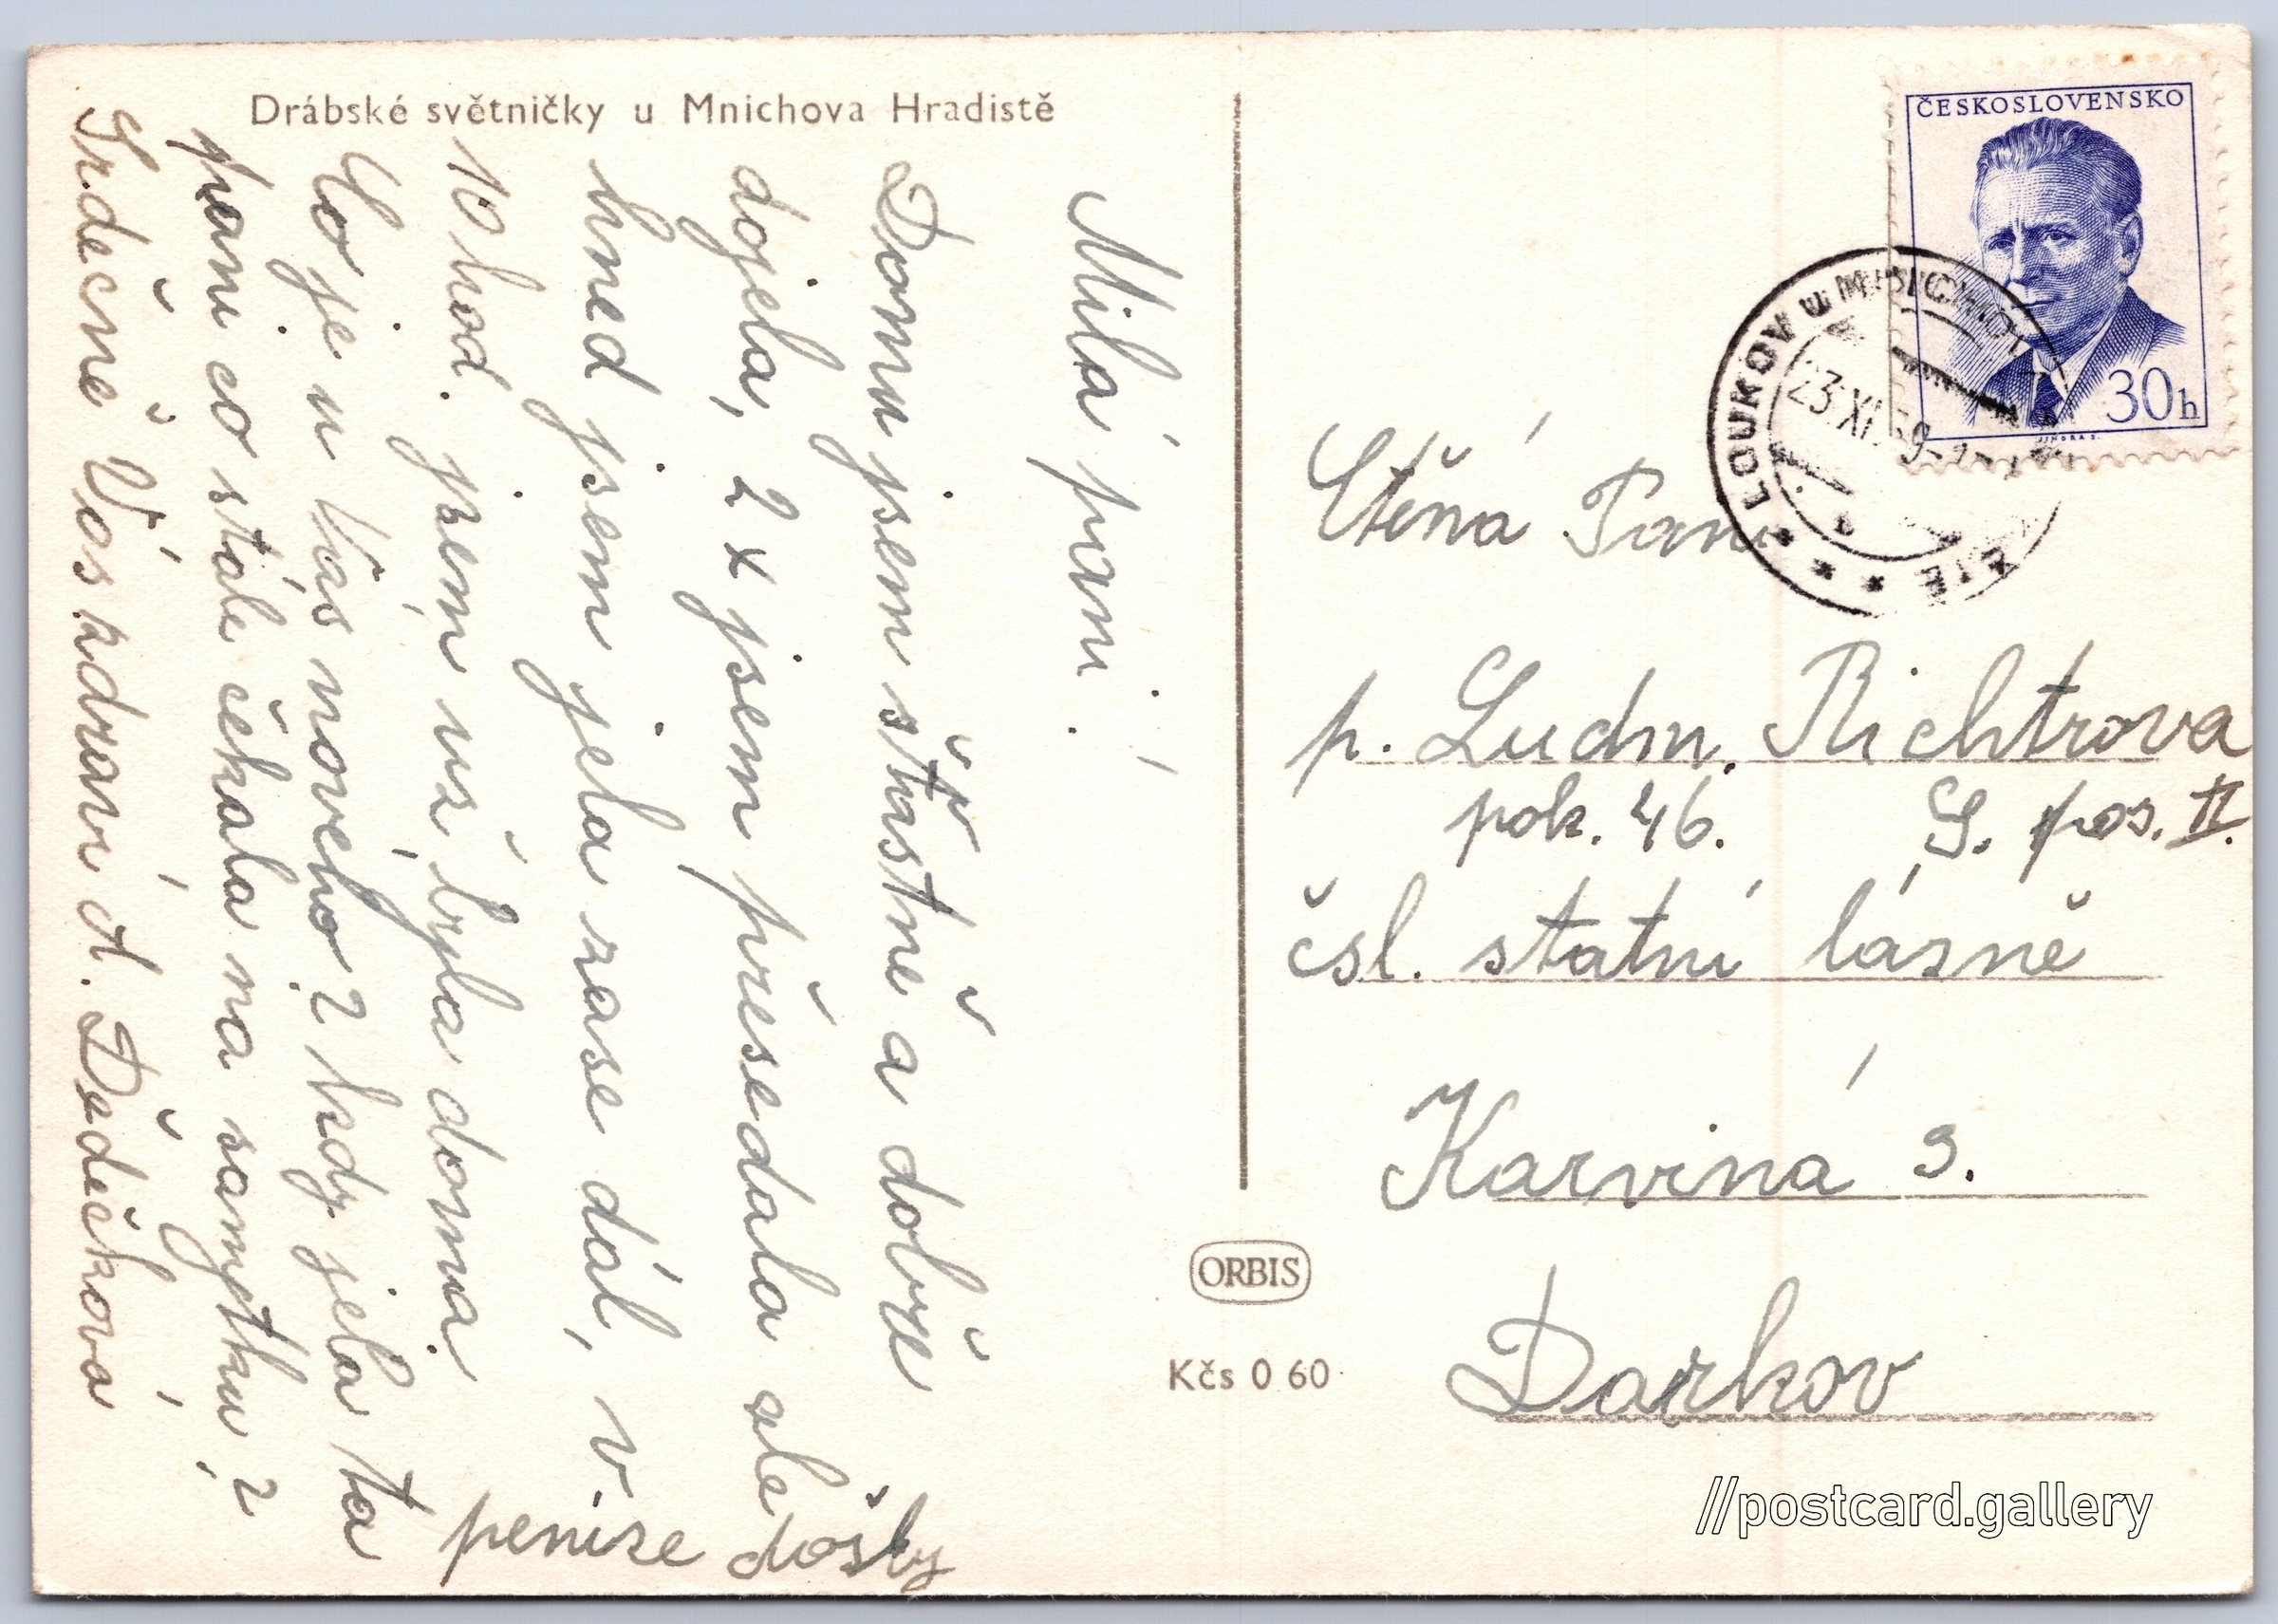 Drábské světničky u Mnichova Hradistě
Milá paní.
Domu jsem šťastně a dobře
dojela, 2 x jsem přesedala ale
hned jsem jela zase dál, v
10 hod. jsem už byla doma.
Co je u Vás nového? kdy jela ta
paní co stále čekala na sanytku?
Srdečně Vás zdraví A. Dědečková
penize došly
ČESKOSLOVENSKO
30h
JINDRA S.
LOUKOV u MNICHOV
23.XI.59-
Ctěná Paní
p. Ludm. Richtrova
pok. 46. S. pos. II.
čsl. statní lázně
Karviná 9.
Darkov
ORBIS
Kčs 0 60
//postcard.gallery